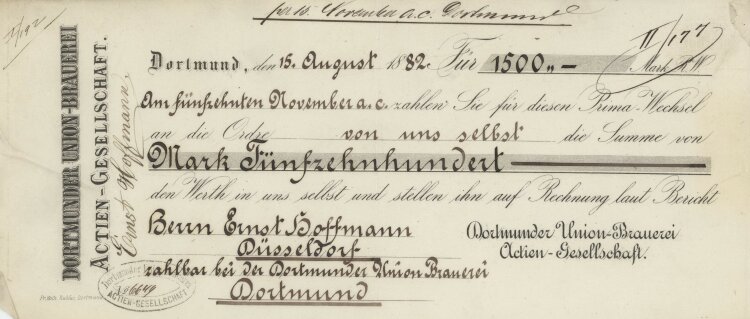 per 15. November a.c. Dortmund
II/177
DORTMUNDER UNION-BRAUEREI
ACTIEN-GESELLSCHAFT.
Ernst Hoffmann
Dortmund, den 15. August 1882. Für 1500,,-
Mark R.W.
Am fünfzehnten November a.c. zahlen Sie für diesen Prima-Wechsel
an die Ordre von uns selbst die Summe von
Mark Fünfzehnhundert
den Werth in uns selbst und stellen ihn auf Rechnung laut Bericht
Herrn Ernst Hoffmann
Düsseldorf
zahlbar bei der Dortmunder Union Brauerei
Dortmund
Dortmunder Union-Brauerei
Actien-Gesellschaft.
Dortmunder
No 6649
ACTIEN-GESELLSCHAFT